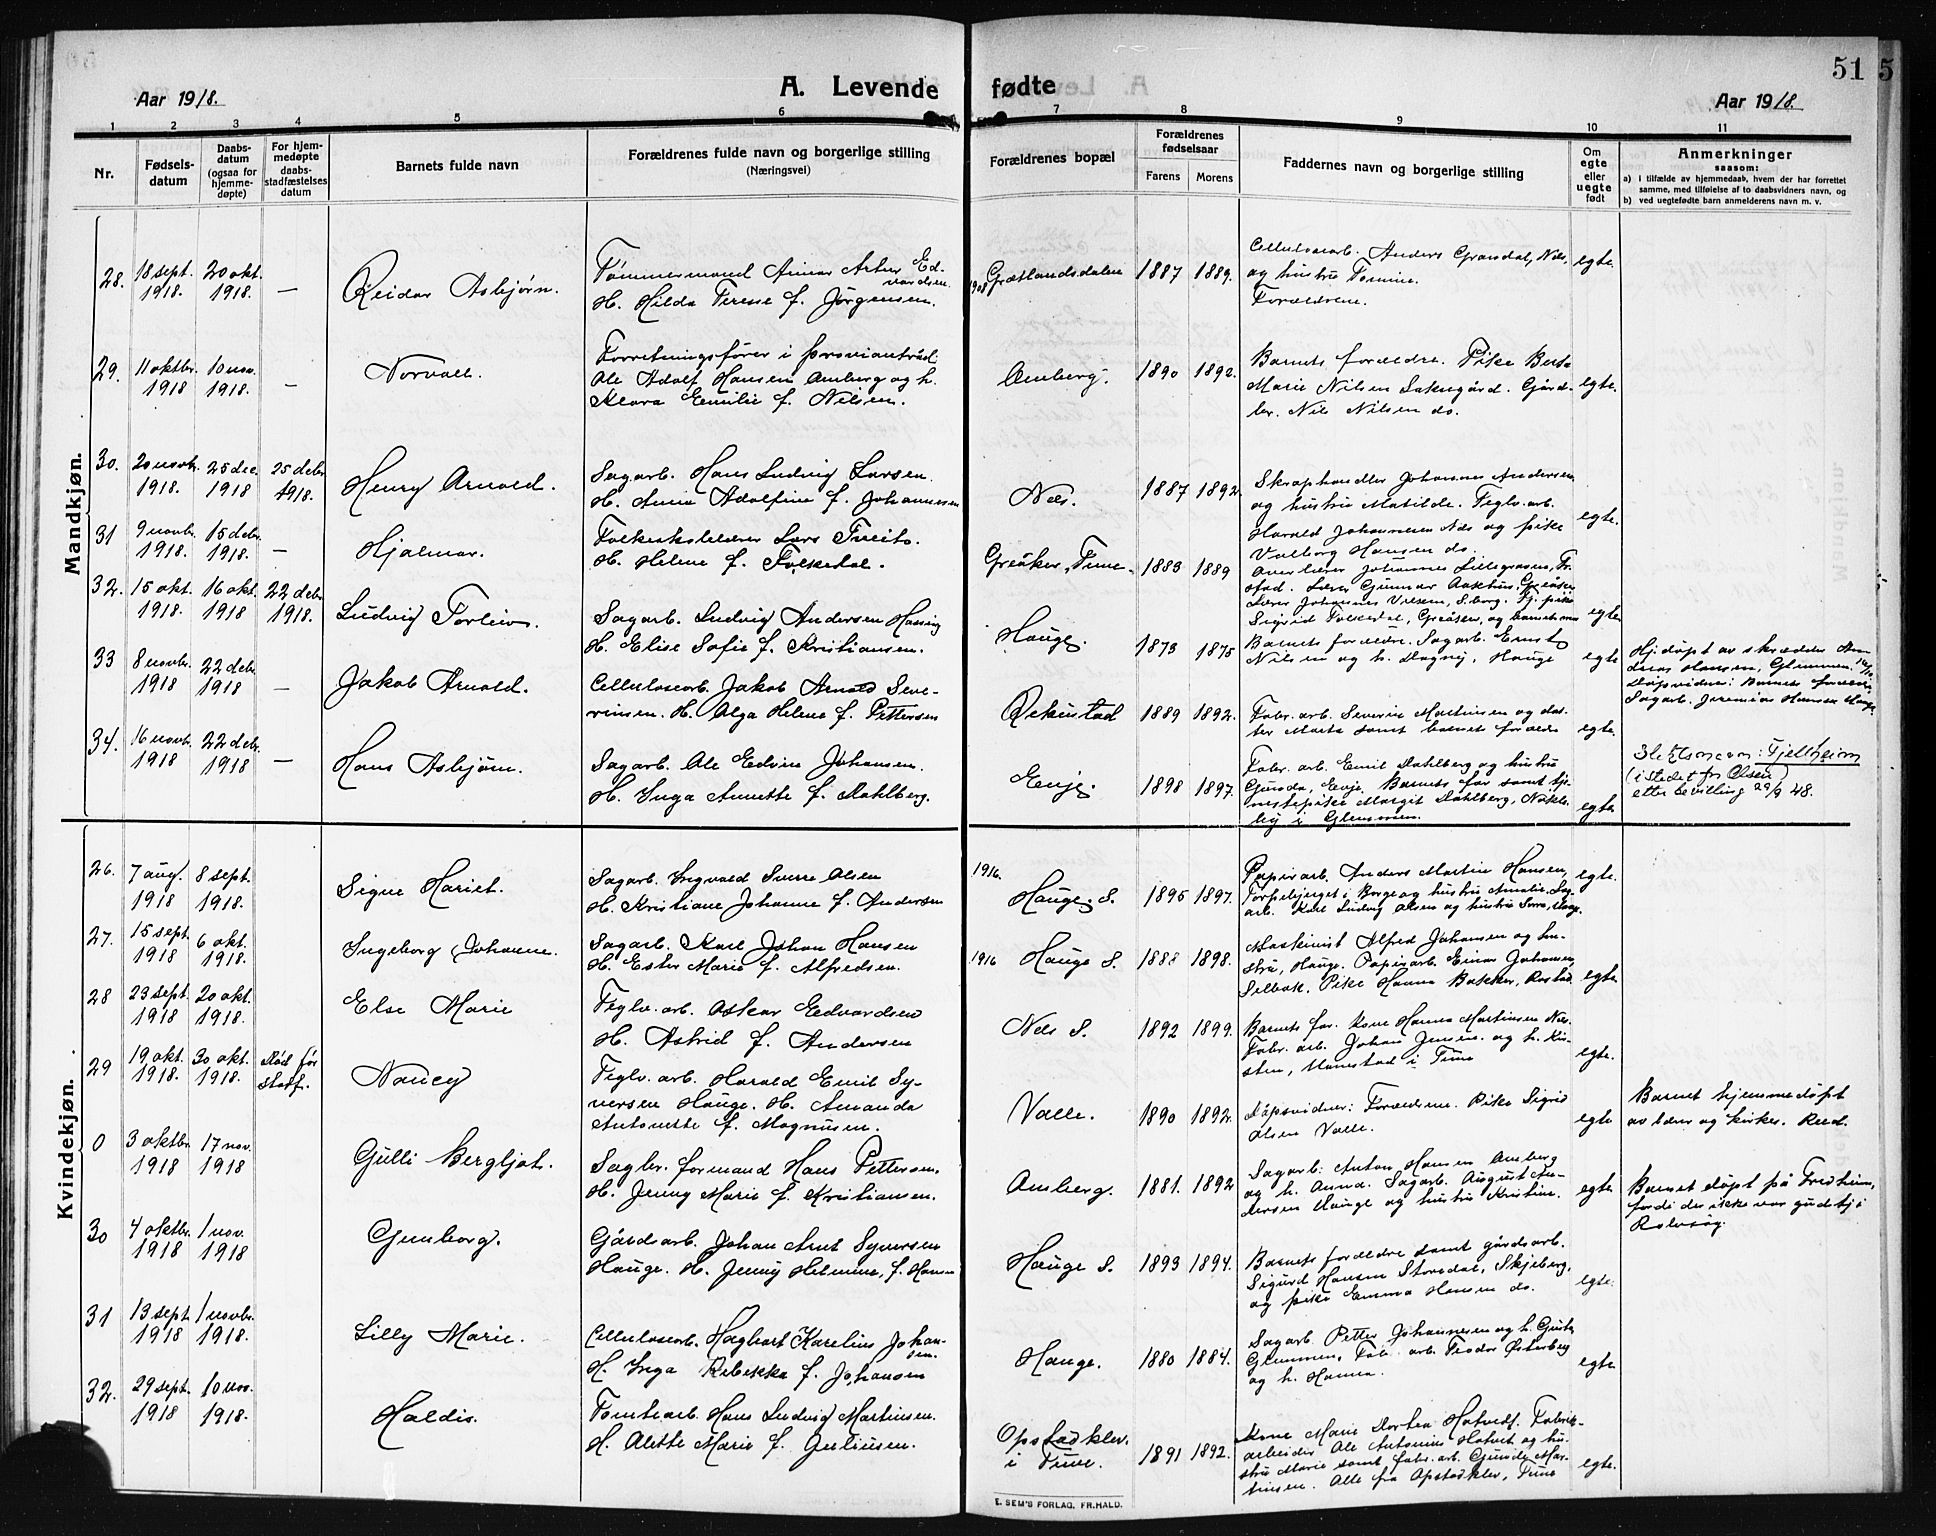 51
Aar 1918.
A. Levende fødte
Aar 1918.
1 2 3 4 5 6 7 8 9 10 11
Nr.
Fødsels-
datum
Daabs-
datum
(ogsaa for
hjemme-
døpte)
For hjem-
medøpte
daabs-
stadfæstelses
datum
Barnets fulde navn
Forældrenes fulde navn og borgerlige stilling
(Næringsvei)
Forældrenes bopæl
Forældrenes
fødselsaar
Farens Morens
Faddernes navn og borgerlige stilling
Om
egte
eller
uegte
født
Anmerkninger
saasom:
a) i tilfælde av hjemmedaab, hvem der har forrettet
samme, med tilføielse af to daabsvidners navn, og
b) ved uegtefødte barn anmelderens navn m. v.
Mandkjøn.
28. 18 sept. 1918. 20 okt. 1918. —
Reidar Asbjørn.
Tømmermand Einar Artur Ed-
vardsen
H. Hilda Terese f. Jørgensen.
1908 Grætlandsdalen 1887 1889.
Cellulosearb. Anders Grandal, Nes,
og hustru Tomine.
Forældrene.
egte.
29. 11 oktbr. 1918 10 nov. 1918. —
Norvall.
Forretningsfører i proviantråd
Ole Adolf Hansen Amberg og h.
Klara Emilie f. Nilsen.
Amberg. 1890 1892.
Barnets forældre. Pike Berta
Marie Nilsen Laksegård. Gård-
br. Nils Nilsen do.
egte.
30. 20 novbr. 1918. 25 dec. 1918 25 debr. 1918.
Henry Arnold.
Sagarb. Hans Ludvig Larsen.
H. Anna Adolfine f. Johannesen
Nes. 1887 1892.
Skraphandler Johannes Andersen
og hustru Matilde. Teglv. arb.
Harald Johannesen Nes og pike
Valborg Hansen do.
egte.
31 9 novbr. 1918. 15 debr. 1918. —
Hjalmar.
Folkeskolelærer Lars Tveito.
H. Helene f. Folkedal.
Greåker, Tune. 1883 1889
Overlærer Johannes Lillegraven, Fr.
stad. Lærer Gunnar Aakhus, Greåker
Lærer Johannes Vilsem, S.borg. Tj. pike
Sigrid Folkedal, Greåker, og barnets mor
egte
32. 15 okt. 1918. 16 okt. 1918 22 debr. 1918.
Ludvig Torleiv.
Sagarb. Ludvig Andersen Hassing
H. Elise Sofie f. Kristiansen.
Hauge. 1873 1875
Barnets forældre. Sagarb. Ernst
Nilsen og h. Dagny, Hauge
egte
Hj. døpt av skrædder An-
dreas Hansen, Glemmen. 16/10.
Døpvidner: Barnets forældre
Sagarb. Jeremias Hansen Hauge
33 8 novbr. 1918 22 debr. 1918 —
Jakob Arnold.
Cellulosearb. Jakob Arnold Seve-
rinsen. H. Olga Helene f. Pettersen
Rekustad 1889 1892.
Fabr. arb. Severin Martinsen og dat-
ter Marta samt barnets forældre
egte.
34. 16 novbr. 1918 22 debr. 1918 —
Hans Asbjørn.
Sagarb. Ole Edvin Johansen.
H. Inga Annette f. Dahlberg.
Evje. 1898 1897.
Fabr. arb. Emil Dahlberg og hustru
Gunda, Evje. Barnets far samt tje-
nestepike Margit Dahlberg, Nøkle-
by i Glemmen.
egte
Slektsnavn: Fjellheim
(i stedet for Olsen)
etter bevilling 29/9 48.
Kvindekjøn.
26. 7 aug. 1918 8 sept. 1918.
Signe Hariet.
Sagarb. Ingvald Sverre Olsen
H. Kristiane Johanne f. Andersen
1916. Hauge. S. 1895 1897.
Papirarb. Anders Martin Hansen,
Torpebjerget i Borge og hustru Amalie. Sag-
arb. Karl Ludvig Olsen og hustru Sara, Hauge.
egte.
27. 15 sept. 1918 6 okt. 1918.
Ingeborg Johanne.
Sagarb. Karl Johan Hansen
H. Ester Marie f. Alfredsen.
1916 Hauge S. 1888 1898.
Maskinist Alfred Johansen og hu-
stru, Hauge. Papirarb. Einar Johansen,
Selbak. Pike Hanna Bakker, Rostad
egte
28 23 sept. 1918 20 okt. 1918.
Else Marie
Teglv. arb. Oskar Edvardsen
H. Astrid f. Andersen
Nes S. 1892 1899.
Barnets far. Kone Hanna Martinsen Nes.
Fabr. arb. Johan Jensen og h. Kir-
sten, Hanestad i Tune
egte.
29 19 okt. 1918. 30 okt. 1918. Død før stadf.
Nancy
Teglv. arb. Harald Emil Sy-
versen Hauge. H. Amanda
Antonette f. Magnusen.
Valle. 1890 1892.
Døpsvidner: Forældrene. Pike Sigrid
Olsen Valle.
egte
Barnet hjemmedøpt
av lærer og kirkes. Reed.
0 3 oktbr. 1918 17 nov. 1918
Gulli Bergljot.
Sagbr. formand Hans Pettersen.
H. Jenny Marie f. Kristiansen.
Amberg. 1881. 1892
Sagarb. Anton Hansen Amberg
og h. Anna. Sagarb. August An-
dersen Hauge og hustru Kristine.
egte
Barnet døpt på Fredheim,
fordi der ikke var gudstj. i
Rolvsøy.
30 4 oktbr. 1918 1 nov. 1918
Gunborg.
Gårdsarb. Johan Arnt Syversen
Hauge. H. Jenny Helmine, f. Hansen
Hauge S. 1893 1894.
Barnets forældre samt gårdsarb.
Sigurd Hansen Stordal, Skjeberg,
og pike Emma Hansen do.
egte.
31 13 sept. 1918 1 novbr. 1918.
Lilly Marie.
Cellulosearb. Hagbart Karelius Johan-
sen.
H. Inga Rebekka f. Johansen
Hauge. 1880 1884.
Sagarb. Petter Johannesen og h. Gusta
Glemmen. Fab. arb. Teodor Østerberg
og h. Hanna.
egte
32. 29 sept. 1918 10 nov. 1918.
Haldis.
Tomtearb. Hans Ludvig Martinsen.
H. Alette Marie f. Juliusen.
Opstadklev.
i Tune. 1891 1892.
Kone Marie Dortea Hatvedt. Fabrik-
arbeider Ole Antonius Hatvet og hu-
stru Marie samt fabr. arb. Gunda Mar-
tinsen. Alle fra Opstadklev, Tune
egte.
E. SEM'S FORLAG, FR.HALD.